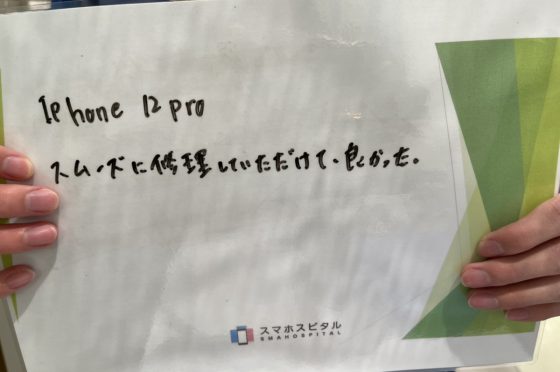 Iphone 12 pro
スムーズに修理していただけて、良かった。
スマホスピタル
SMAHOSPITAL